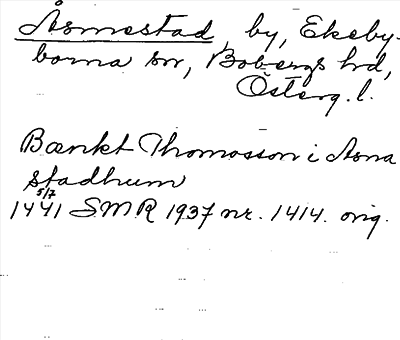 Åsmestad, by, Ekeby-
borna sn, Bobergs hd,
Österg. l.
Bænkt Thomosson i Asna
stadhum
5/7
1441 S.M.R 1937 nr. 1414. orig.